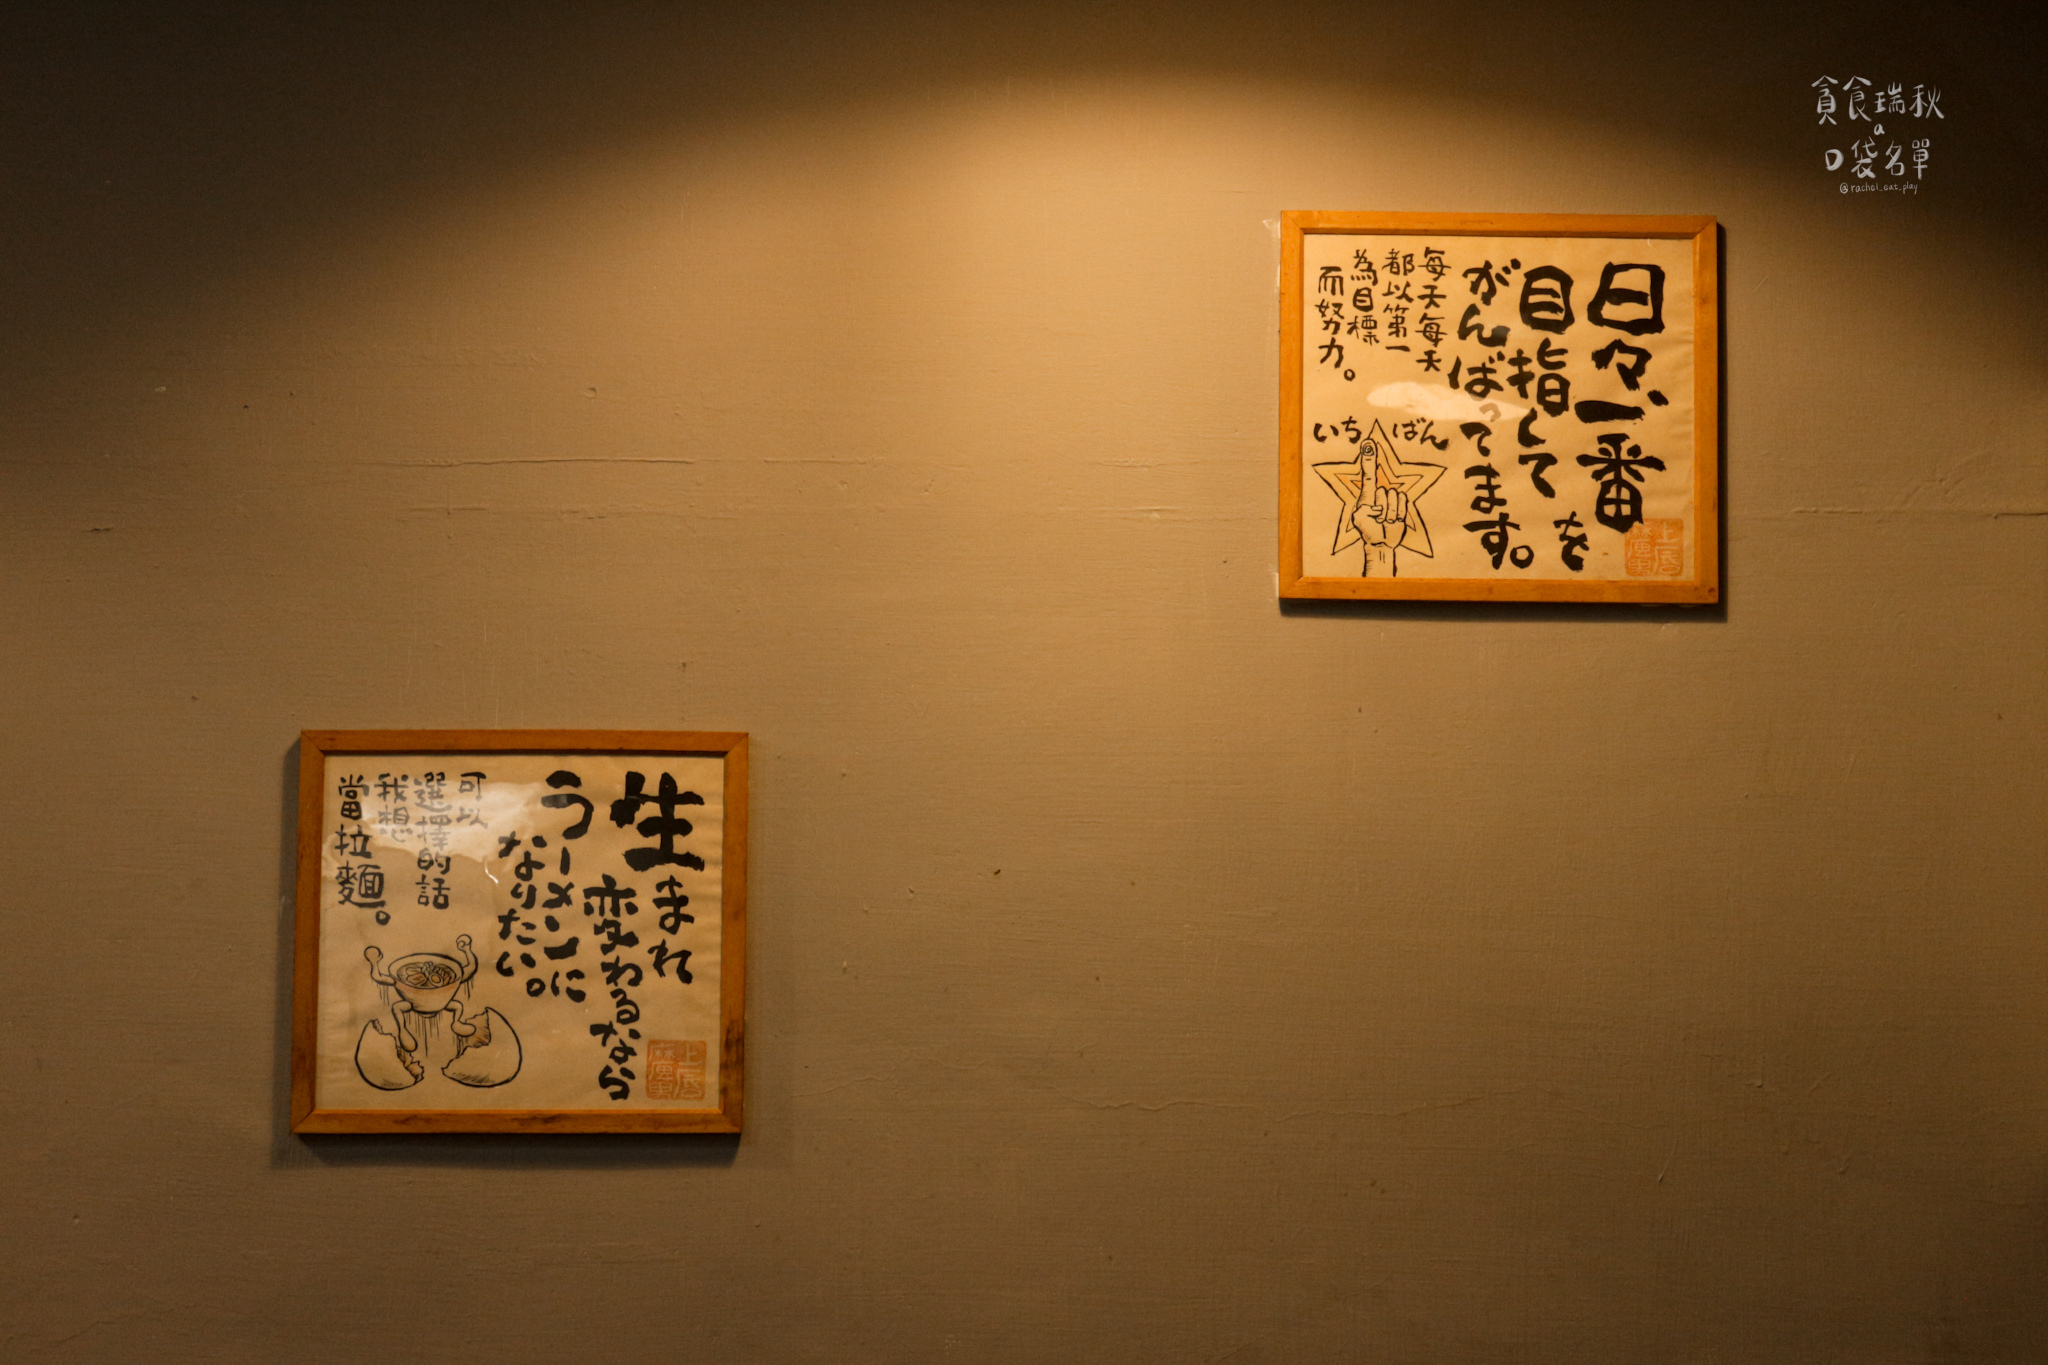 貪食瑞秋
a
口袋名單
@rachel_eat_play
日々、一番を
目指して
がんばってます。
每天每天
都以第一
為目標
而努力。
いちばん
生まれ
変わるなら
ラーメンに
なりたい。
可以
選擇的話
我想
當拉麵。